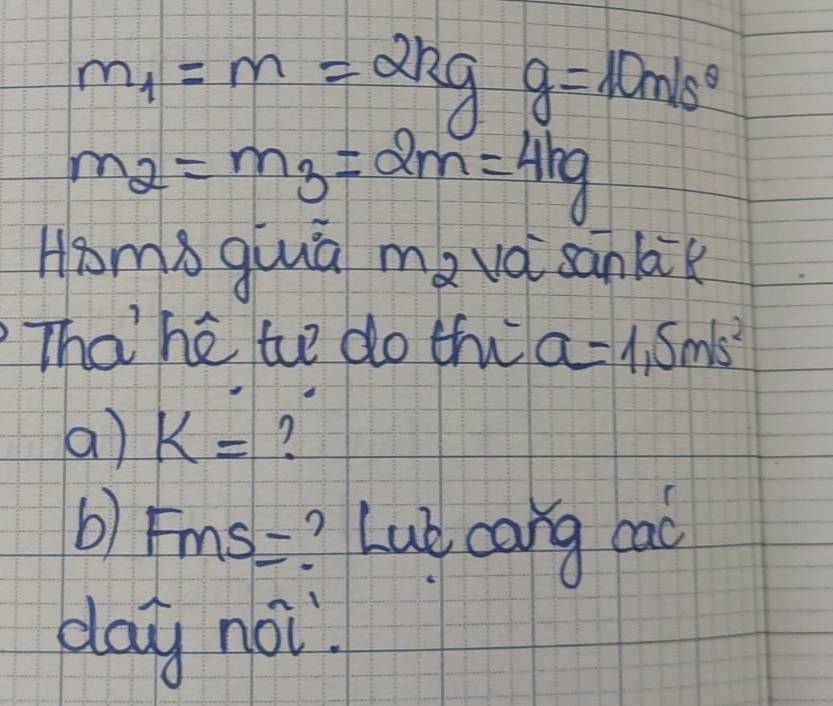 m₁ = m = 2kg g = 10m/s²
m₂ = m₃ = 2m = 4kg
Hsms giữa m₂ và sàn là k
Thả hệ tự do thì a = 1,5m/s²
a) K = ?
b) Fms = ? Lực căng các
dây nối.